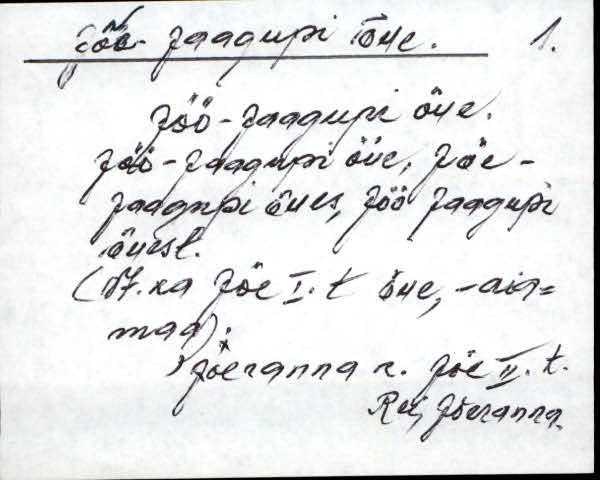 Jöö-Jaagupi õue. 1.
Jöö-Jaagupi õue.
Jöö-Jaagupi õue, Jöe-
Jaagupi õues, Jöö Jaagupi
õuest.
(Vt. ka Jõe I. t õue, -aia=
maa).
Jõeranna k. Jõe II. t.
Rei, Jõeranna.